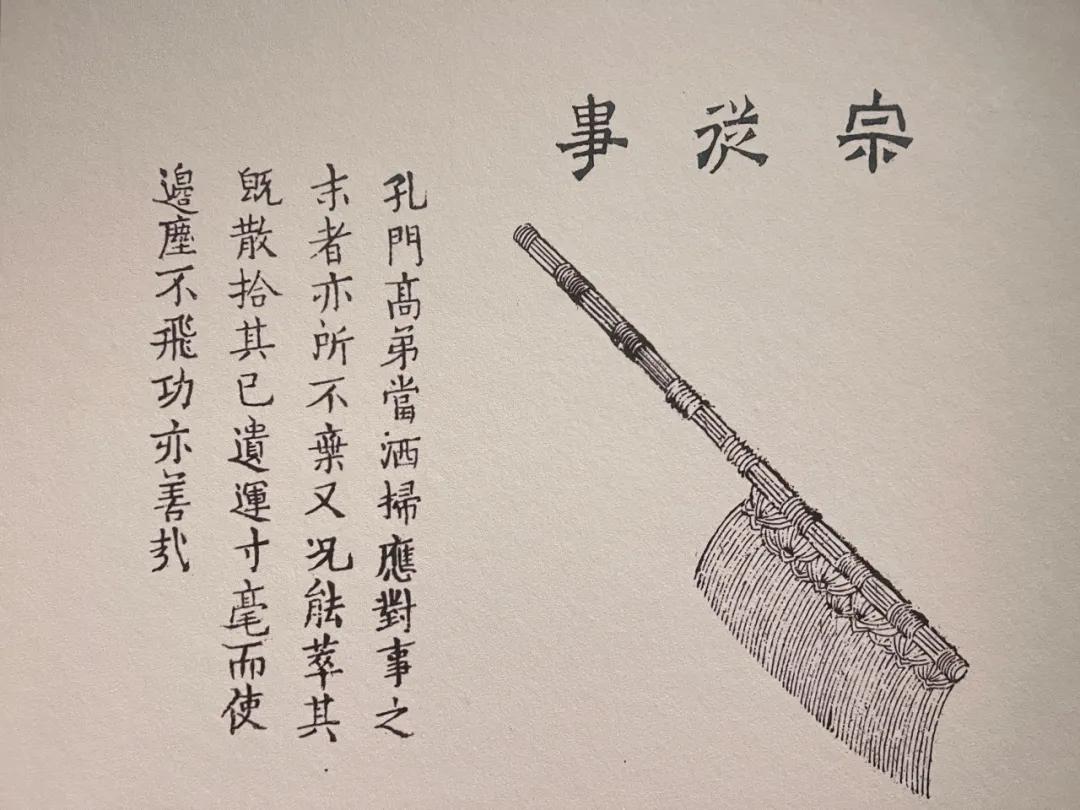 宗從事
孔門高弟當洒掃應對事之
末者亦所不棄又况能萃其
旣散拾其已遺運寸毫而使
邊塵不飛功亦善哉